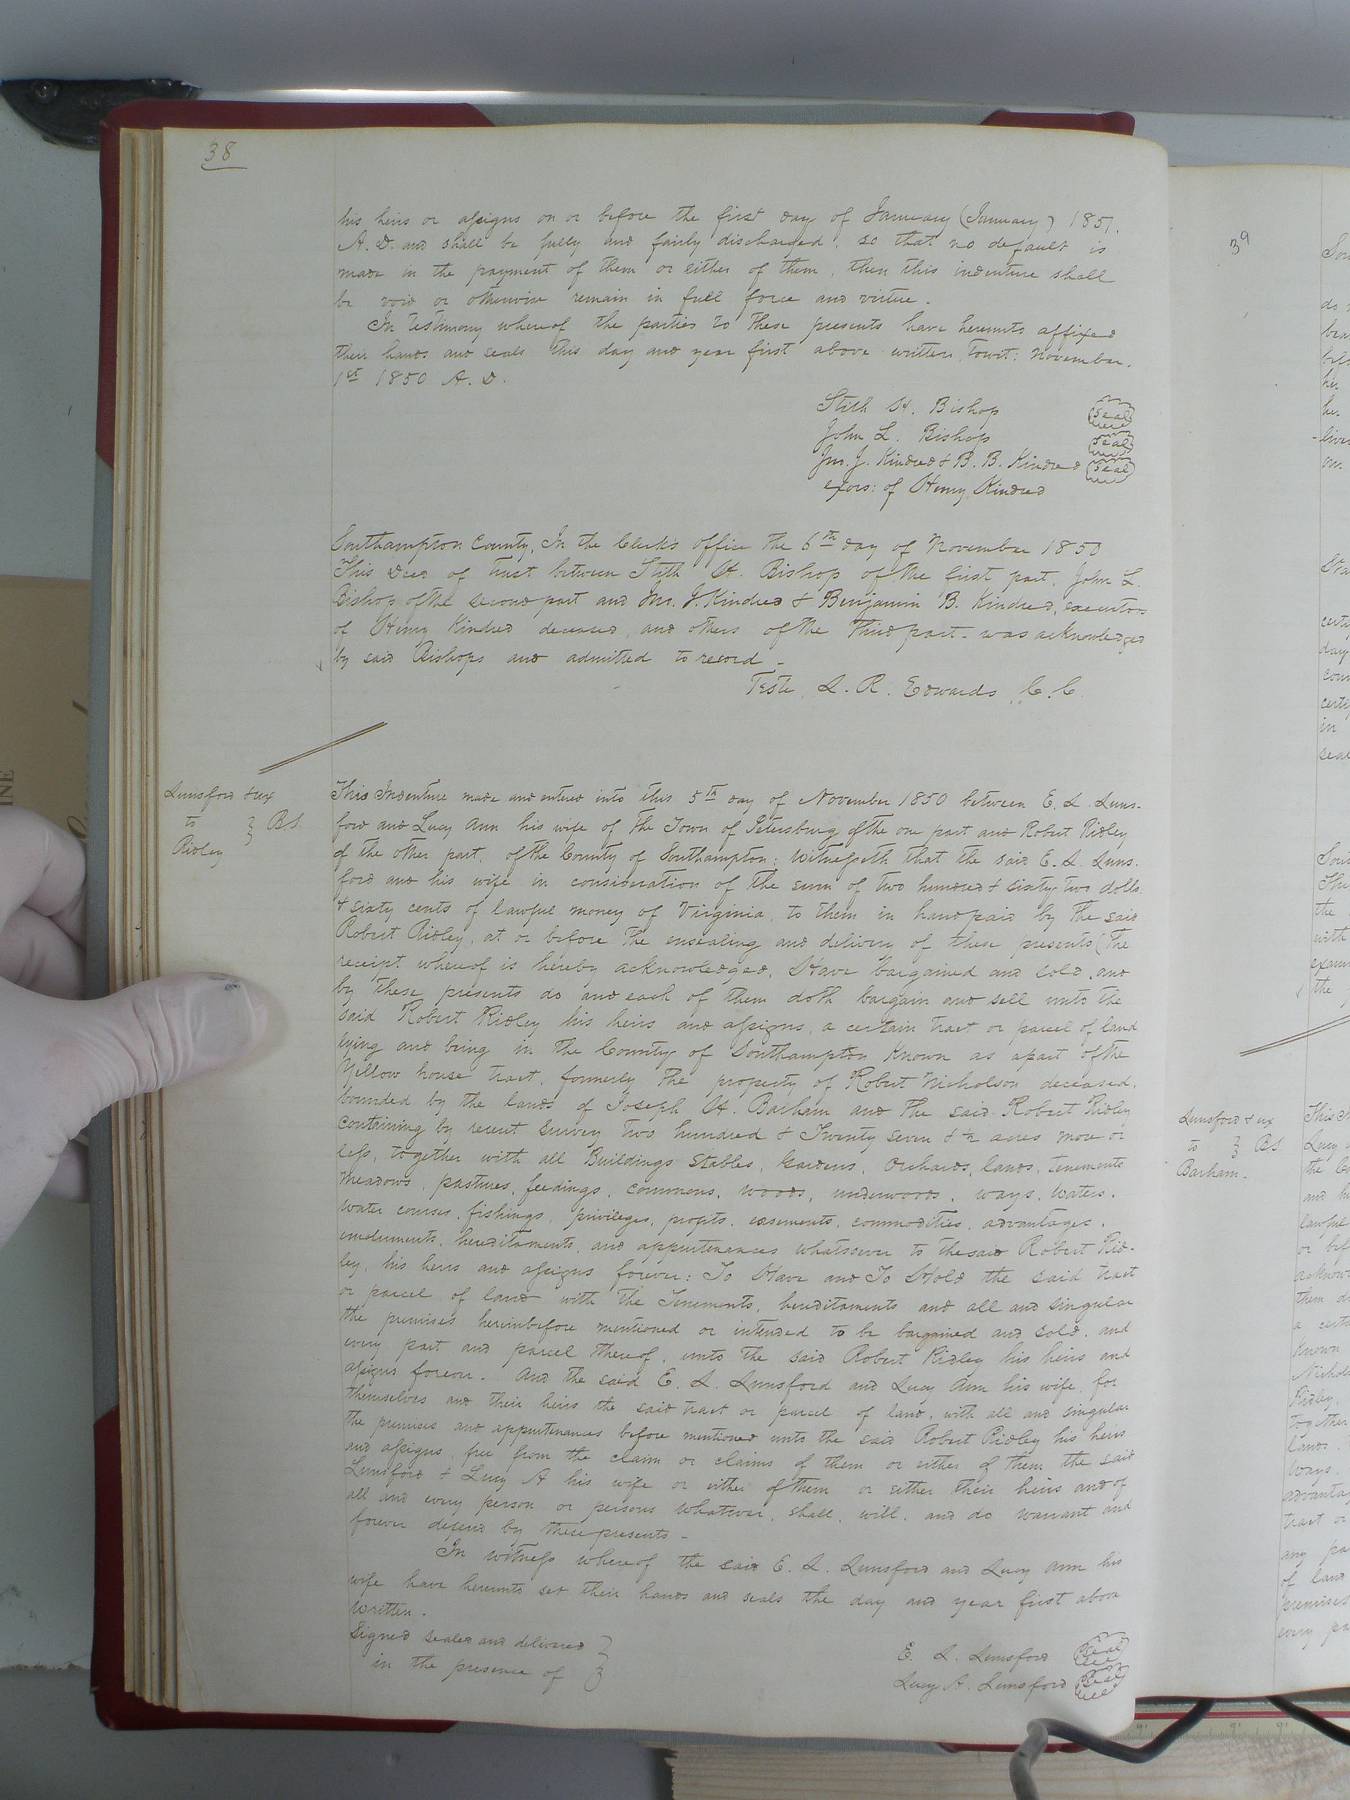 38
his heirs or assigns on or before the first day of January (January) 1851.
A. D. and shall be fully and fairly discharged, so that no default is
made in the payment of them or either of them, then this indenture shall
be void or otherwise remain in full force and virtue.
In Testimony whereof the parties to these presents have hereunto affixed
their hands and seals this day and year first above written, Towit: November.
1st 1850 A. D.
Stith H. Bishop Seal
John L. Bishop Seal
Jno. J. Kindred & B. B. Kindred Seal
exors: of Henry Kindred
Southampton County, In the Clerk's office the 6th day of November 1850
This Deed of trust between Stith H. Bishop of the first part, John L.
Bishop of the second part and Jno. J. Kindred & Benjamin B. Kindred, executors
of Henry Kindred deceased, and others of the third part - was acknowledged
by said Bishops and admitted to record -
Teste, L. R. Edwards, C. C.
Lunsford & ux
to } BS.
Ridley
This Indenture made and entered into this 5th day of November 1850 between E. L. Luns-
ford and Lucy Ann his wife of The Town of Petersburg of the one part and Robert Ridley
of the other part, of the County of Southampton: Witnesseth that the said E. L. Luns.
ford and his wife in consideration of the sum of two hundred & sixty two dolls.
& sixty cents of lawful money of Virginia, to them in hand paid by the said
Robert Ridley, at or before the ensealing and delivery of these presents (the
receipt whereof is hereby acknowledged, Have bargained and sold, and
by these presents do and each of them doth bargain and sell unto the
said Robert Ridley his heirs and assigns, a certain tract or parcel of land
lying and being in the County of Southampton known as apart of the
Yellow house tract, formerly the property of Robert Nicholson deceased,
bounded by the lands of Joseph H. Barham and the said Robert Ridley
containing by recent survey two hundred & Twenty seven & ½ acres more or
less, together with all Buildings Stables, Gardens, Orchards, lands, tenements
meadows, pastures, feedings, commons, woods, underwoods, ways, Waters,
Water courses, fishings, privileges, profits, easements, commodities, advantages,
emoluments, hereditaments, and appurtenances whatsoever to the said Robert Rid-
ley, his heirs and assigns forever: To Have and To Hold the said tract
or parcel of land with the Tenements, hereditaments and all and singular
the premises hereinbefore mentioned or intended to be bargained and sold, and
every part and parcel thereof, unto the said Robert Ridley his heirs and
assigns forever. And the said E. L. Lunsford and Lucy Ann his wife, for
themselves and their heirs the said tract or parcel of land, with all and singular
the premises and appurtenances before mentioned unto the said Robert Ridley his heirs
and assigns, free from the claim or claims of them or either of them the said
Lunsford & Lucy A his wife or either of them or either their heirs and of
all and every person or persons whatever, shall, will, and do warrant and
forever defend by these presents -
In witness whereof the said E. L. Lunsford and Lucy Ann his
wife have hereunto set their hands and seals the day and year first above
Written.
Signed sealed and delivered
in the presence of
E. L. Lunsford Seal
Lucy A. Lunsford Seal
39
Lunsford & ux
to } BS.
Barham.